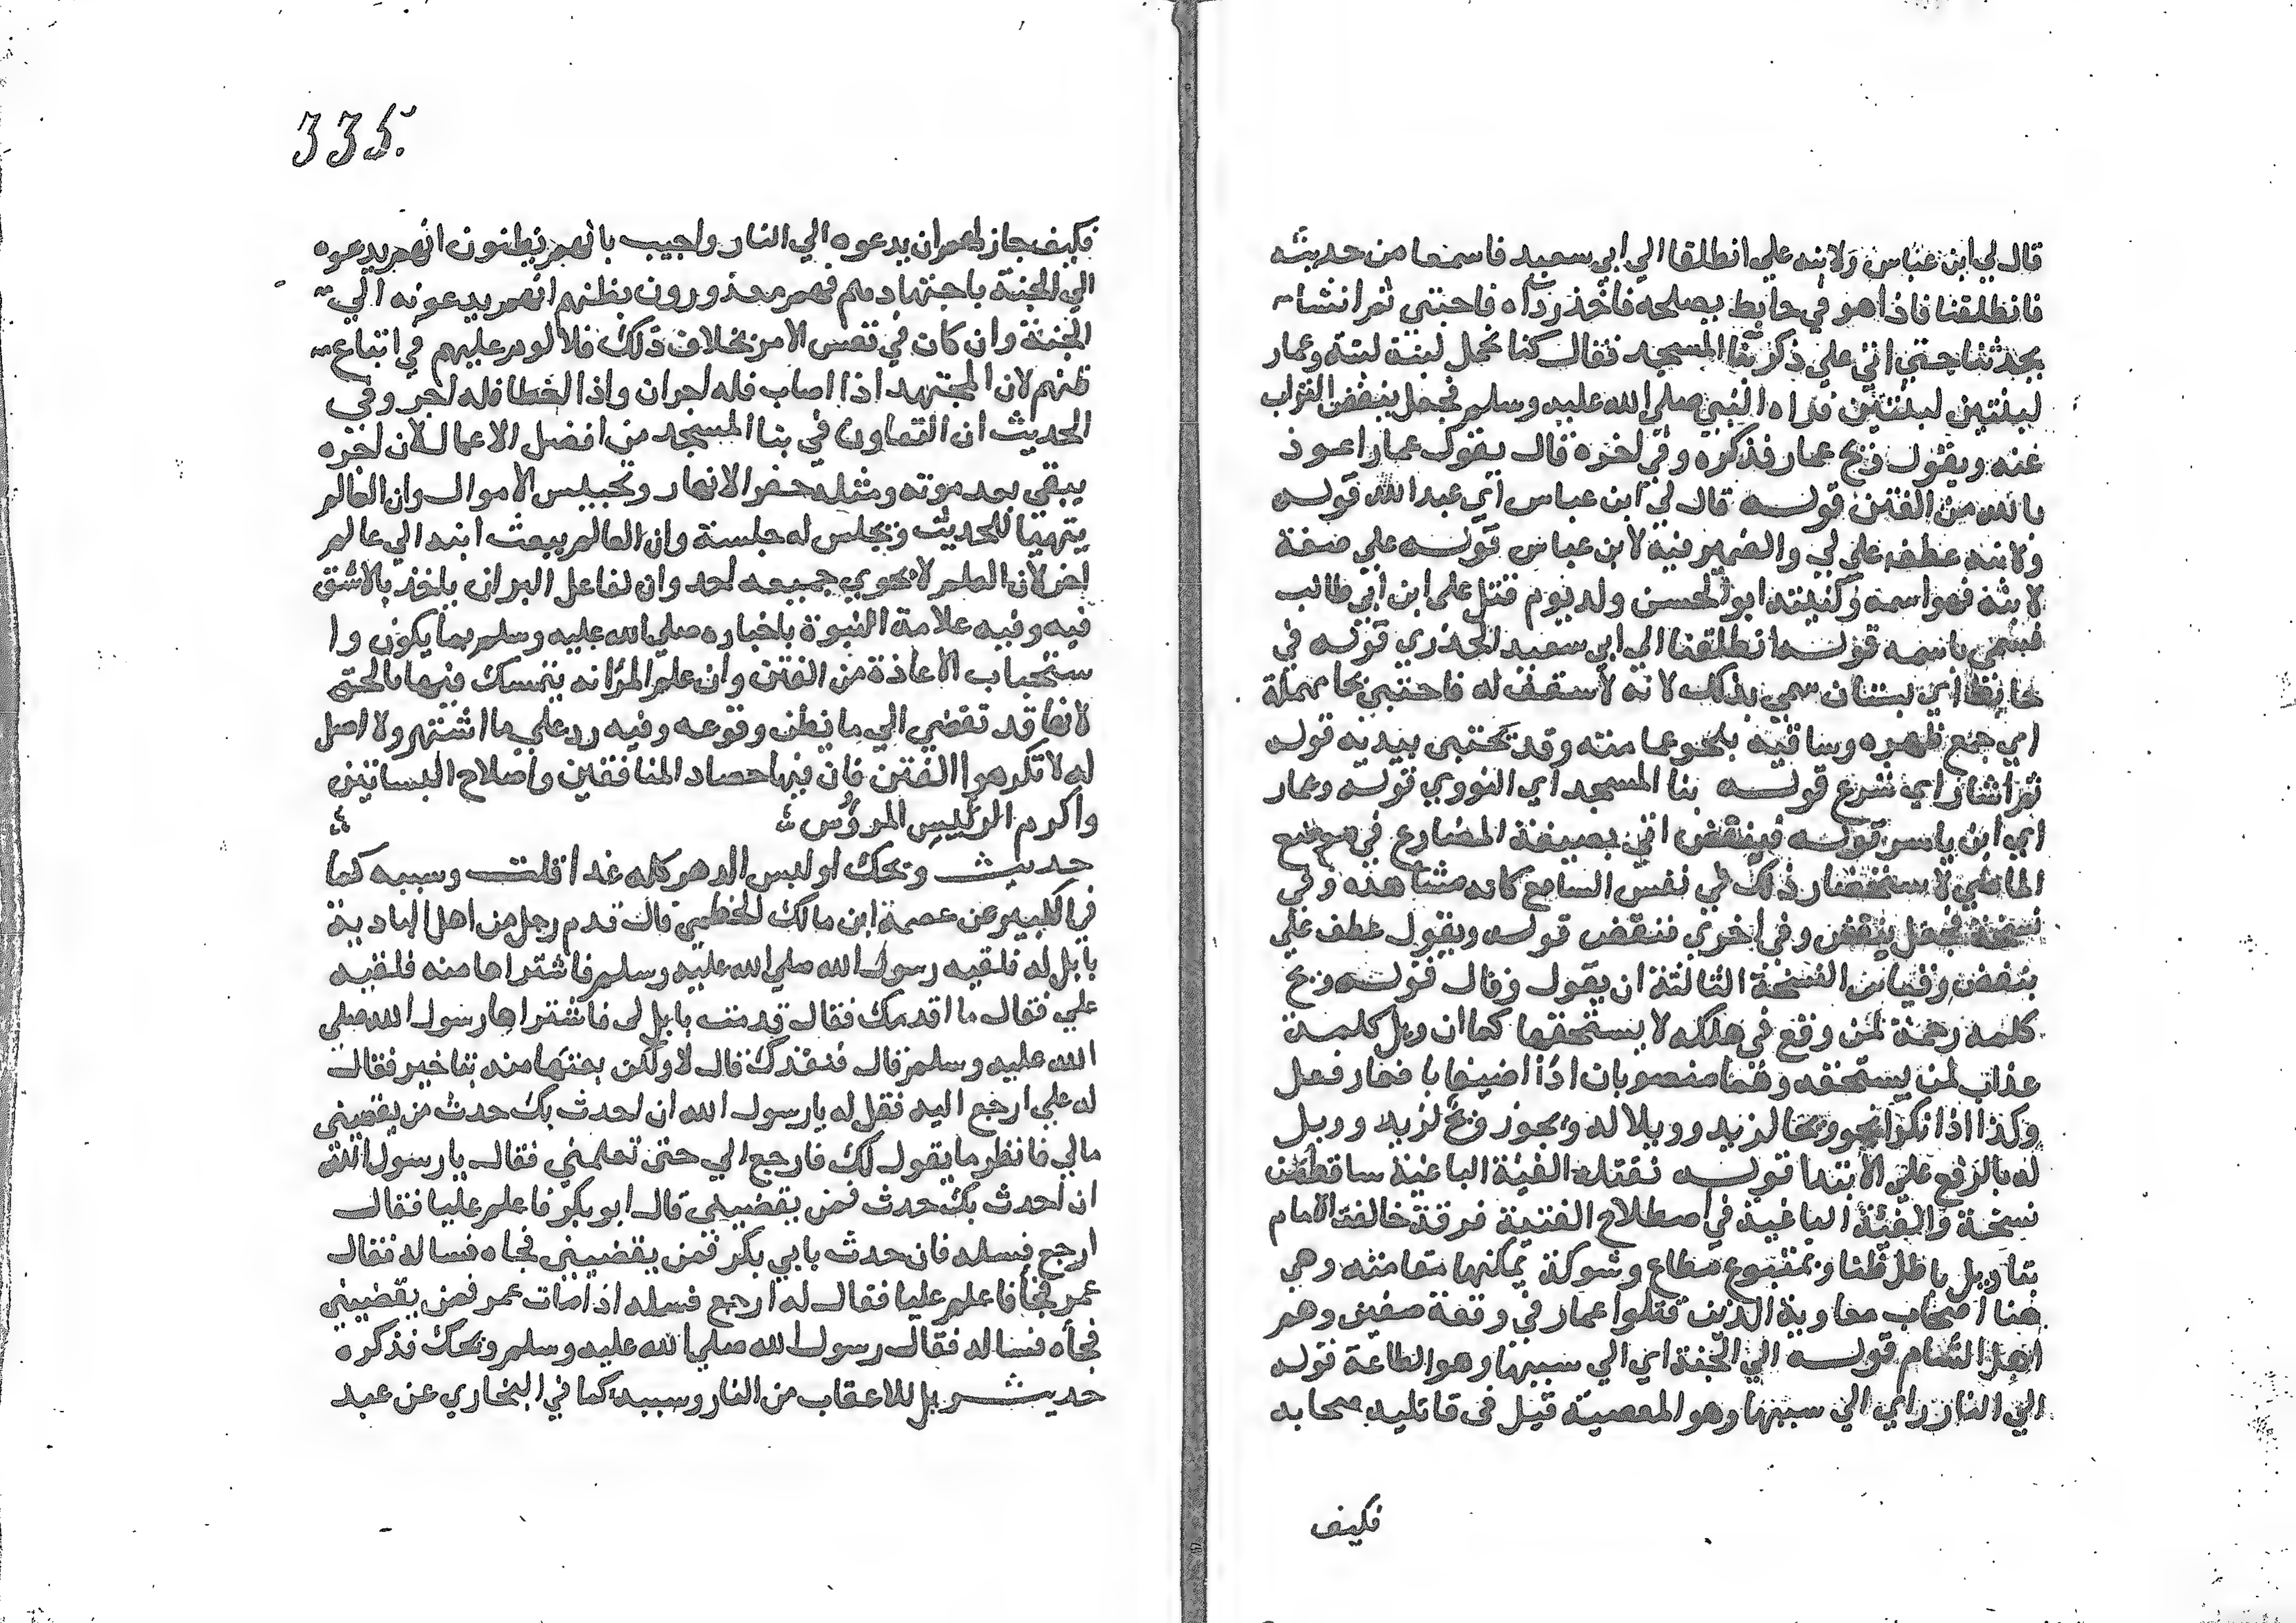 قال لي ابن عباس ولابنه علي انطلقا الي ابي سعيد فاسمعا من حديثه
فانطلقنا فاذا هو في حايط يصلحه فاخذ رداه فاحتبي ثم انشا
يحدثنا حتي اتي علي ذكر بنا المسجد فقال كنا نحمل لبنة لبنة وعمار
لبنتين لبنتين فراه النبي صلي الله عليه وسلم فجعل ينفض التراب
عنه ويقول ويح عمار فذكره وفي اخره قال يقول عمار اعوذ
بالله من الفتن قوله قال لي ابن عباس اي عبد الله قوله
ولابنه عطف علي لي والضمير فيه لابن عباس قوله علي صفة
لابنه فهو اسمه وكنيته ابو الحسن ولد يوم قتل علي ابن ابي طالب
فسمي باسمه قوله انطلقنا الي ابي سعيد الخدري قوله في
حايط اي بستان سمي بذلك لانه لا سقف له فاحتبي بحا مهملة
اي جمع ظهره وساقيه بنحو عمامته وقد يحتبي بيديه قوله
ثم انشا اي شرع قوله بنا المسجد اي النبوي قوله وعمار
اي ابن ياسر قوله فينفض اتي بصيغة المضارع في موضع
الماضي لاستحضار ذلك في نفس السامع كانه مشاهده وفي
نسخة فجعل ينفض وفي اخري فنفض قوله ويقول عطف علي
ينفض وقياس النسخة الثالثة ان يقول وقال قوله ويح
كلمة رحمة لمن وقع في هلكه لا يستحقها كما ان ويل كلمة
عذاب لمن يستحقه وهما منصوبان اذا اضيفا باضمار فعل
وكذا اذا نكرا نحو ويحا لزيد وويلا له ويجوز ويح لزيد وويل
له بالرفع علي الابتدا قوله تقتله الفية الباغية ساقط من
نسخة والفئة الباغية في اصطلاح الفقية فرقة خالفت الامام
بتاويل باطل ظنا وبمتبوع مطاع وشوكة يمكنها مقامته وهي
هنا اصحاب معاوية الذين قتلوا عمار في وقعة صفين وهم
اهل الشام قوله الي الجنة اي الي سببها وهو الطاعة قوله
الي النار اي الي سببها وهو المعصية قيل في قاتليه صحابه
فكيف
335
فكيف جاز لهم ان يدعوه الي النار واجيب بانهم يظنون انهم يدعوه
الي الجنة باجتهادهم فهم معذورون بظنهم انهم يدعونه الي
الجنة وان كان في نفس الامر بخلاف ذلك فلا لوم عليهم في اتباع
ظنهم لان المجتهد اذا اصاب فله اجران واذا اخطا فله اجر وفي
الحديث ان التعاون في بنا المسجد من افضل الاعمال لان اجره
يبقي بعد موته ومثله حفر الانهار وتحبيس الاموال وان العالم
يتهيا للحديث ويجلس له جلسة وان العالم يبعث ابنه الي عالم
اخر لان العلم لا يحوي جميعه احد وان لفاعل البر ان ياخذ بالاشق
فيه وفيه علامة النبوة باخباره صلي الله عليه وسلم بما يكون وا
ستحباب الاعاذة من الفتن وان علم المرٔ انه يتمسك فيها بالحق
لانها قد تفضي الي ما يظن وقوعه وفيه رد علي ما اشتهر ولا اصل
له لا تكرهوا الفتن فان فيها حصاد المنافقين واصلاح البساتين
واكرم الرئيس المرؤس
حديث ويحك اوليس الدهر كله غدا قلت وسببه كما
في الكبير عن عصمة ابن مالك الخطمي قال قدم رجل من اهل البادية
بابل له فلقيه رسول الله صلي الله عليه وسلم فاشتراها منه فلقيه
علي فقال ما اقدمك فقال قدمت بابل لى فاشتراها رسول الله صلي
الله عليه وسلم قال فنقدك قال لا ولكن بعتها منه بتاخير فقال
له علي ارجع اليه فقل له يا رسول الله ان احدث بك حدث من يقضيني
مالي فانظر ما يقول لك فارجع الي حتي تعلمني فقال يا رسول الله
ان احدث بك حدث فمن يقضيني قال ابو بكر فاعلم عليا فقال
ارجع فسله فان حدث بابي بكر فمن يقضيني فجاه فساله فقال
عمر فجأ فاعلم عليا فقال له ارجع فسله اذا مات عمر فمن يقضيني
فجأه فساله فقال رسول الله صلي الله عليه وسلم ويحك فذكره
حديث ويل للاعقاب من النار وسببه كما في البخاري عن عبد